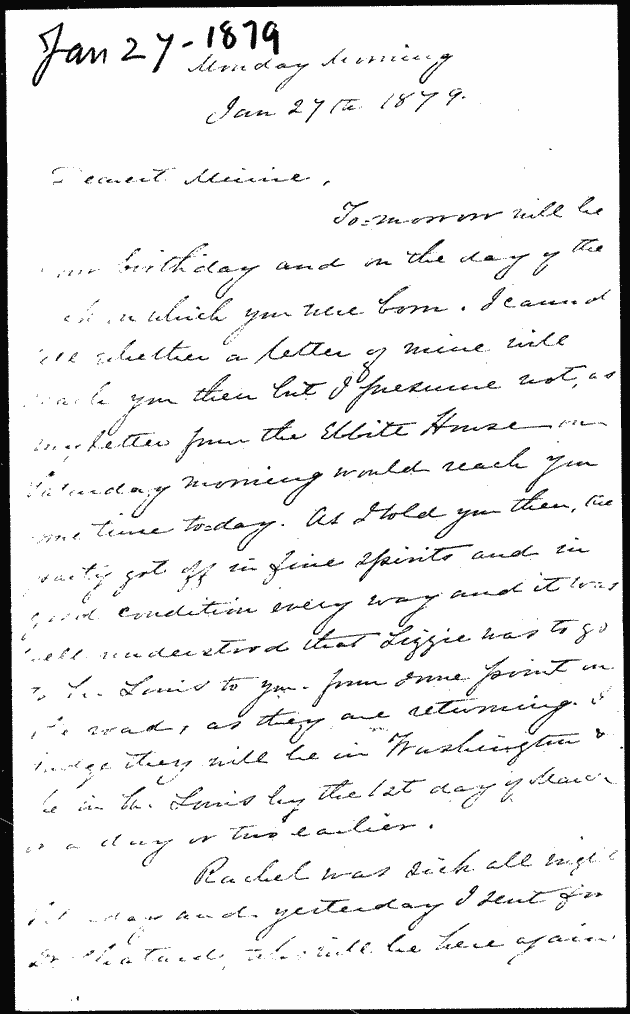 Jan 27-1879
Monday Morning
Jan 27th 1879.
Dearest Minnie,
To=morrow will be
your birthday and on the day of the
which you were born. I cannot
tell whether a letter of mine will
reach you then but I presume not, as
my letter from the Ebbite House on
Saturday morning would reach you
some time to=day. As I told you then, the
party got off in fine spirits and in
good condition every way and it was
well understood that Lizzie was to go
to St. Louis to you from some point on
the road, as they are returning. I
judge they will be in Washington &
be in St. Louis by the 1st day of March
or a day or two earlier.
Rachel was sick all night
and yesterday I sent for
Dr Chatard, who will be here again